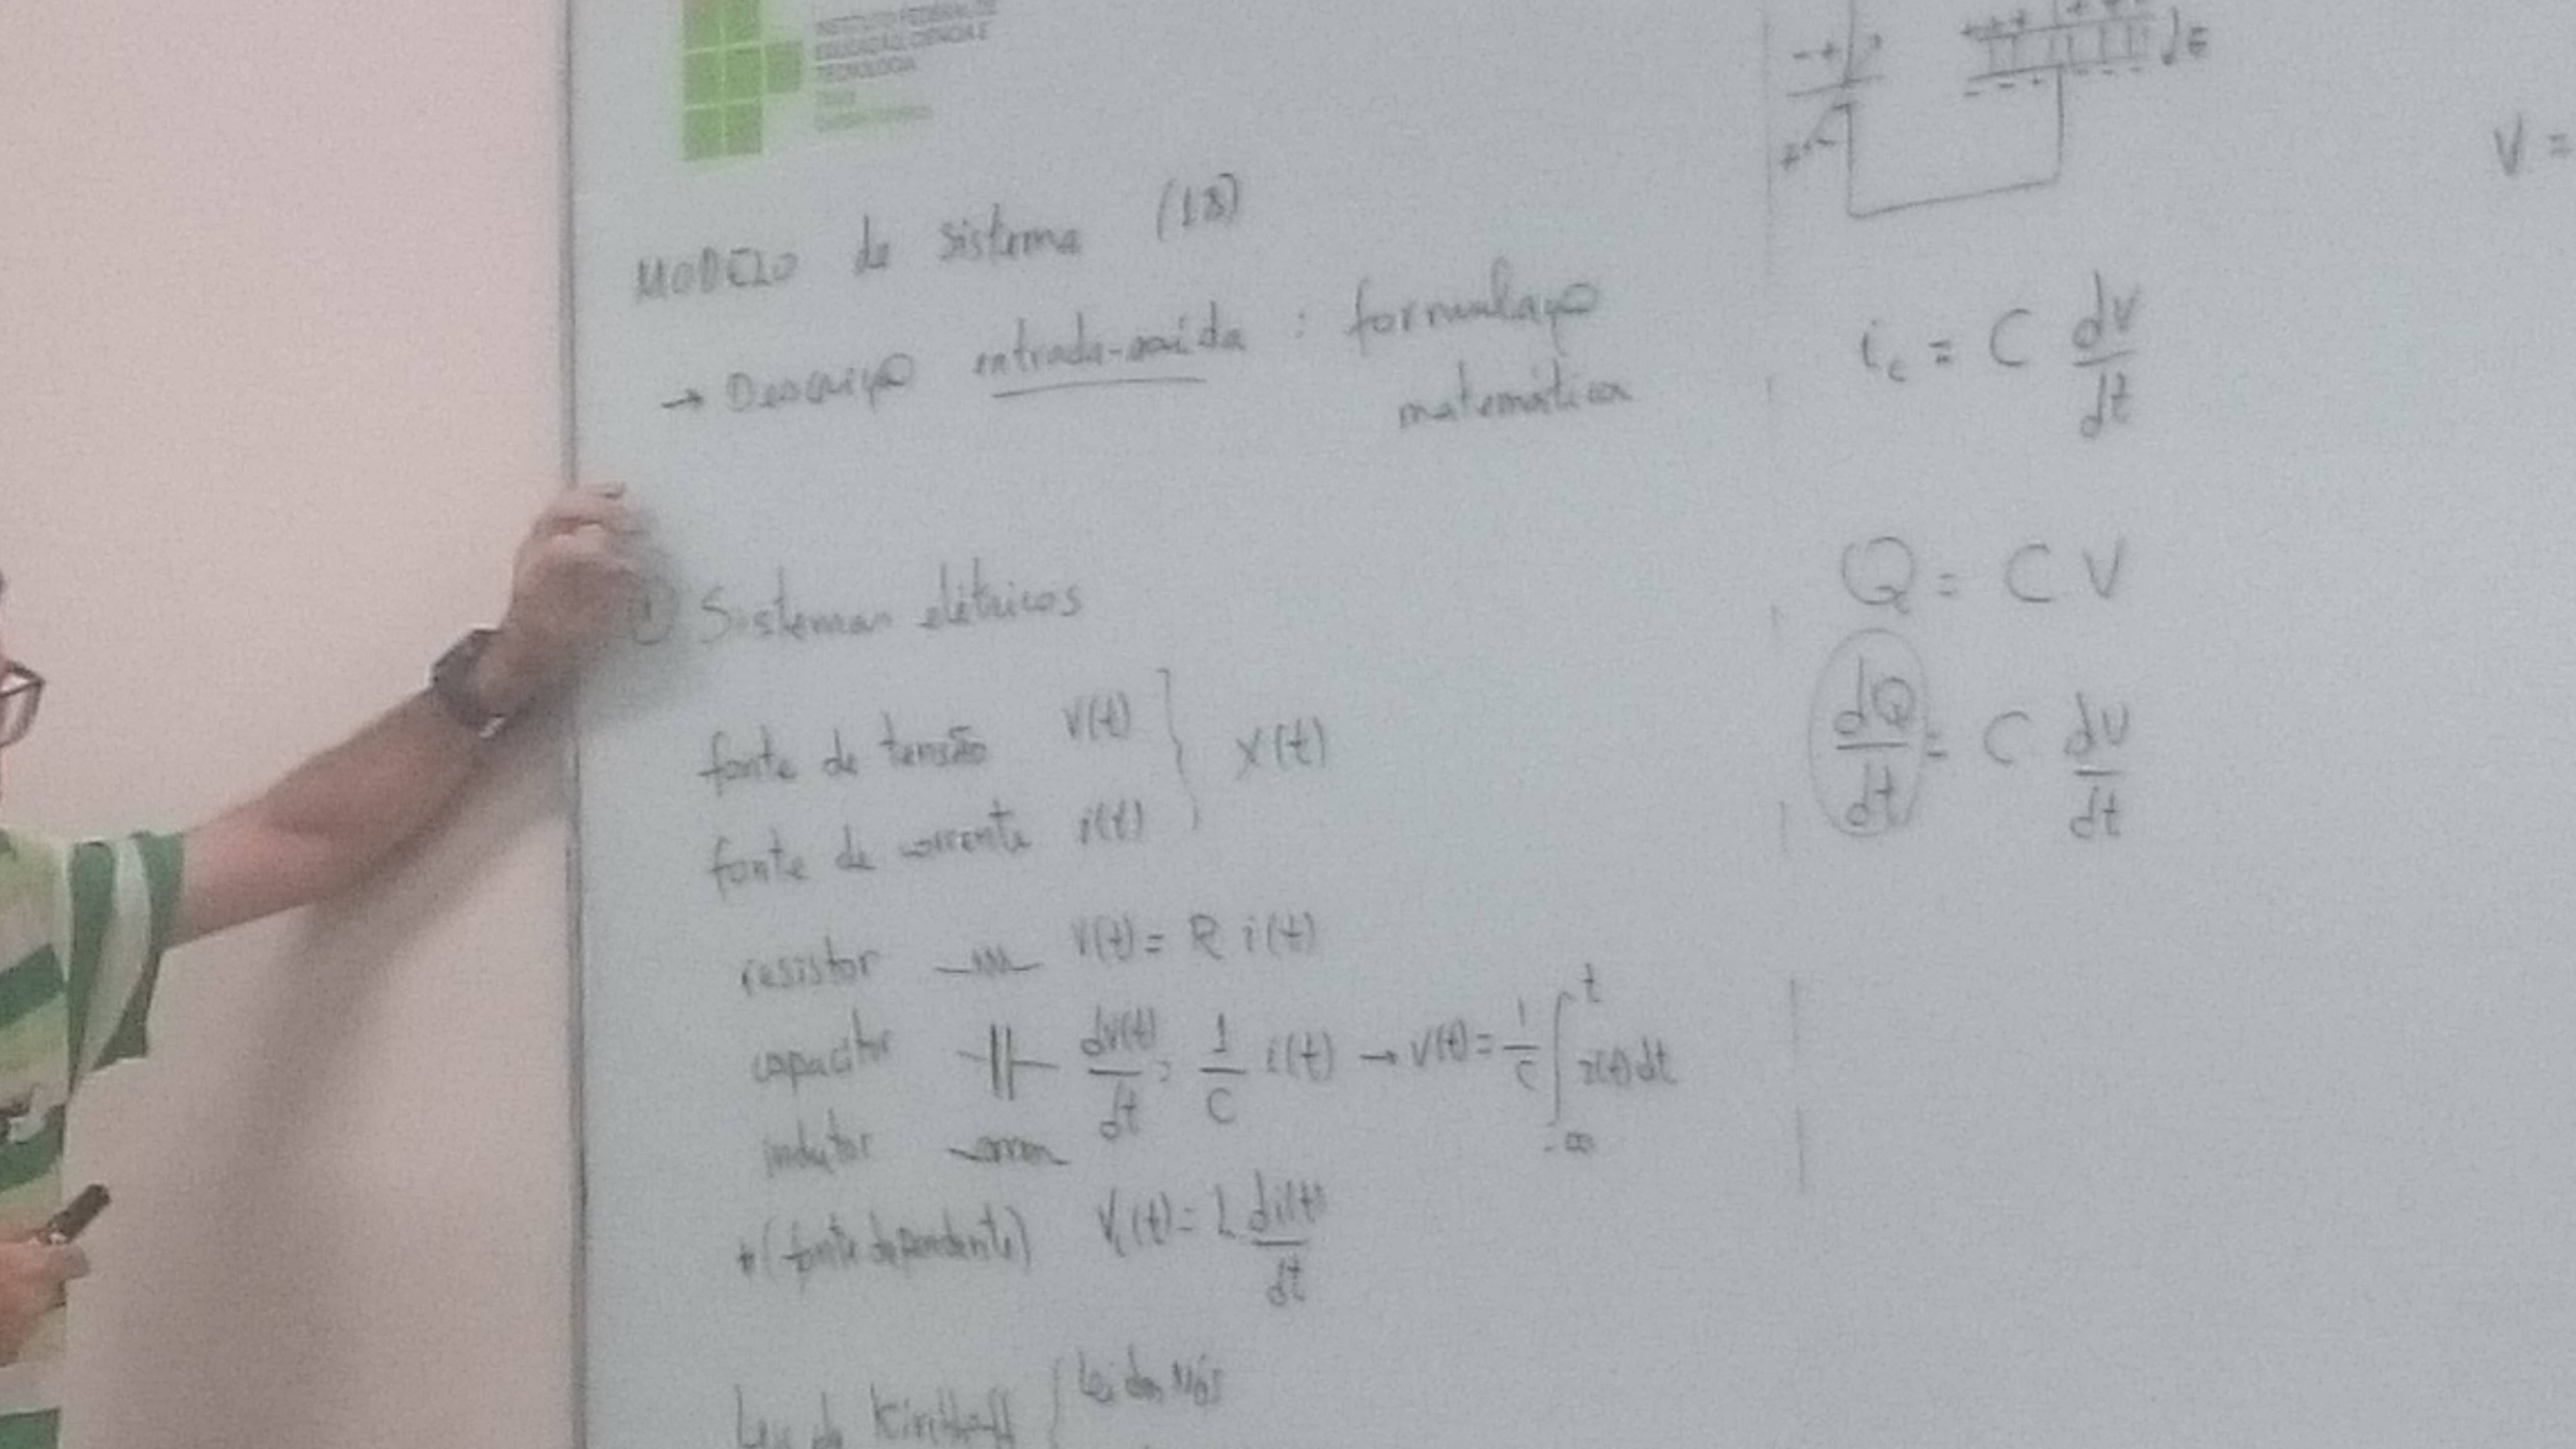 INSTITUTO FEDERAL DE
EDUCAÇÃO, CIÊNCIA E
TECNOLOGIA
MODELO de sistema (18)
→ Descrição entrada-saída : formulação
matemática
① Sistemas elétricos
fonte de tensão v(t) } x(t)
fonte de corrente i(t)
resistor v(t) = R i(t)
capacitor dv(t)/dt = 1/C i(t) → v(t) = 1/C ∫_{-∞}^{t} i(t) dt
indutor
+ (fonte dependente) V_L(t) = L di(t)/dt
Leis de Kirchhoff { Lei dos Nós
i_c = C dv/dt
Q = C V
dQ/dt = C dv/dt
V =